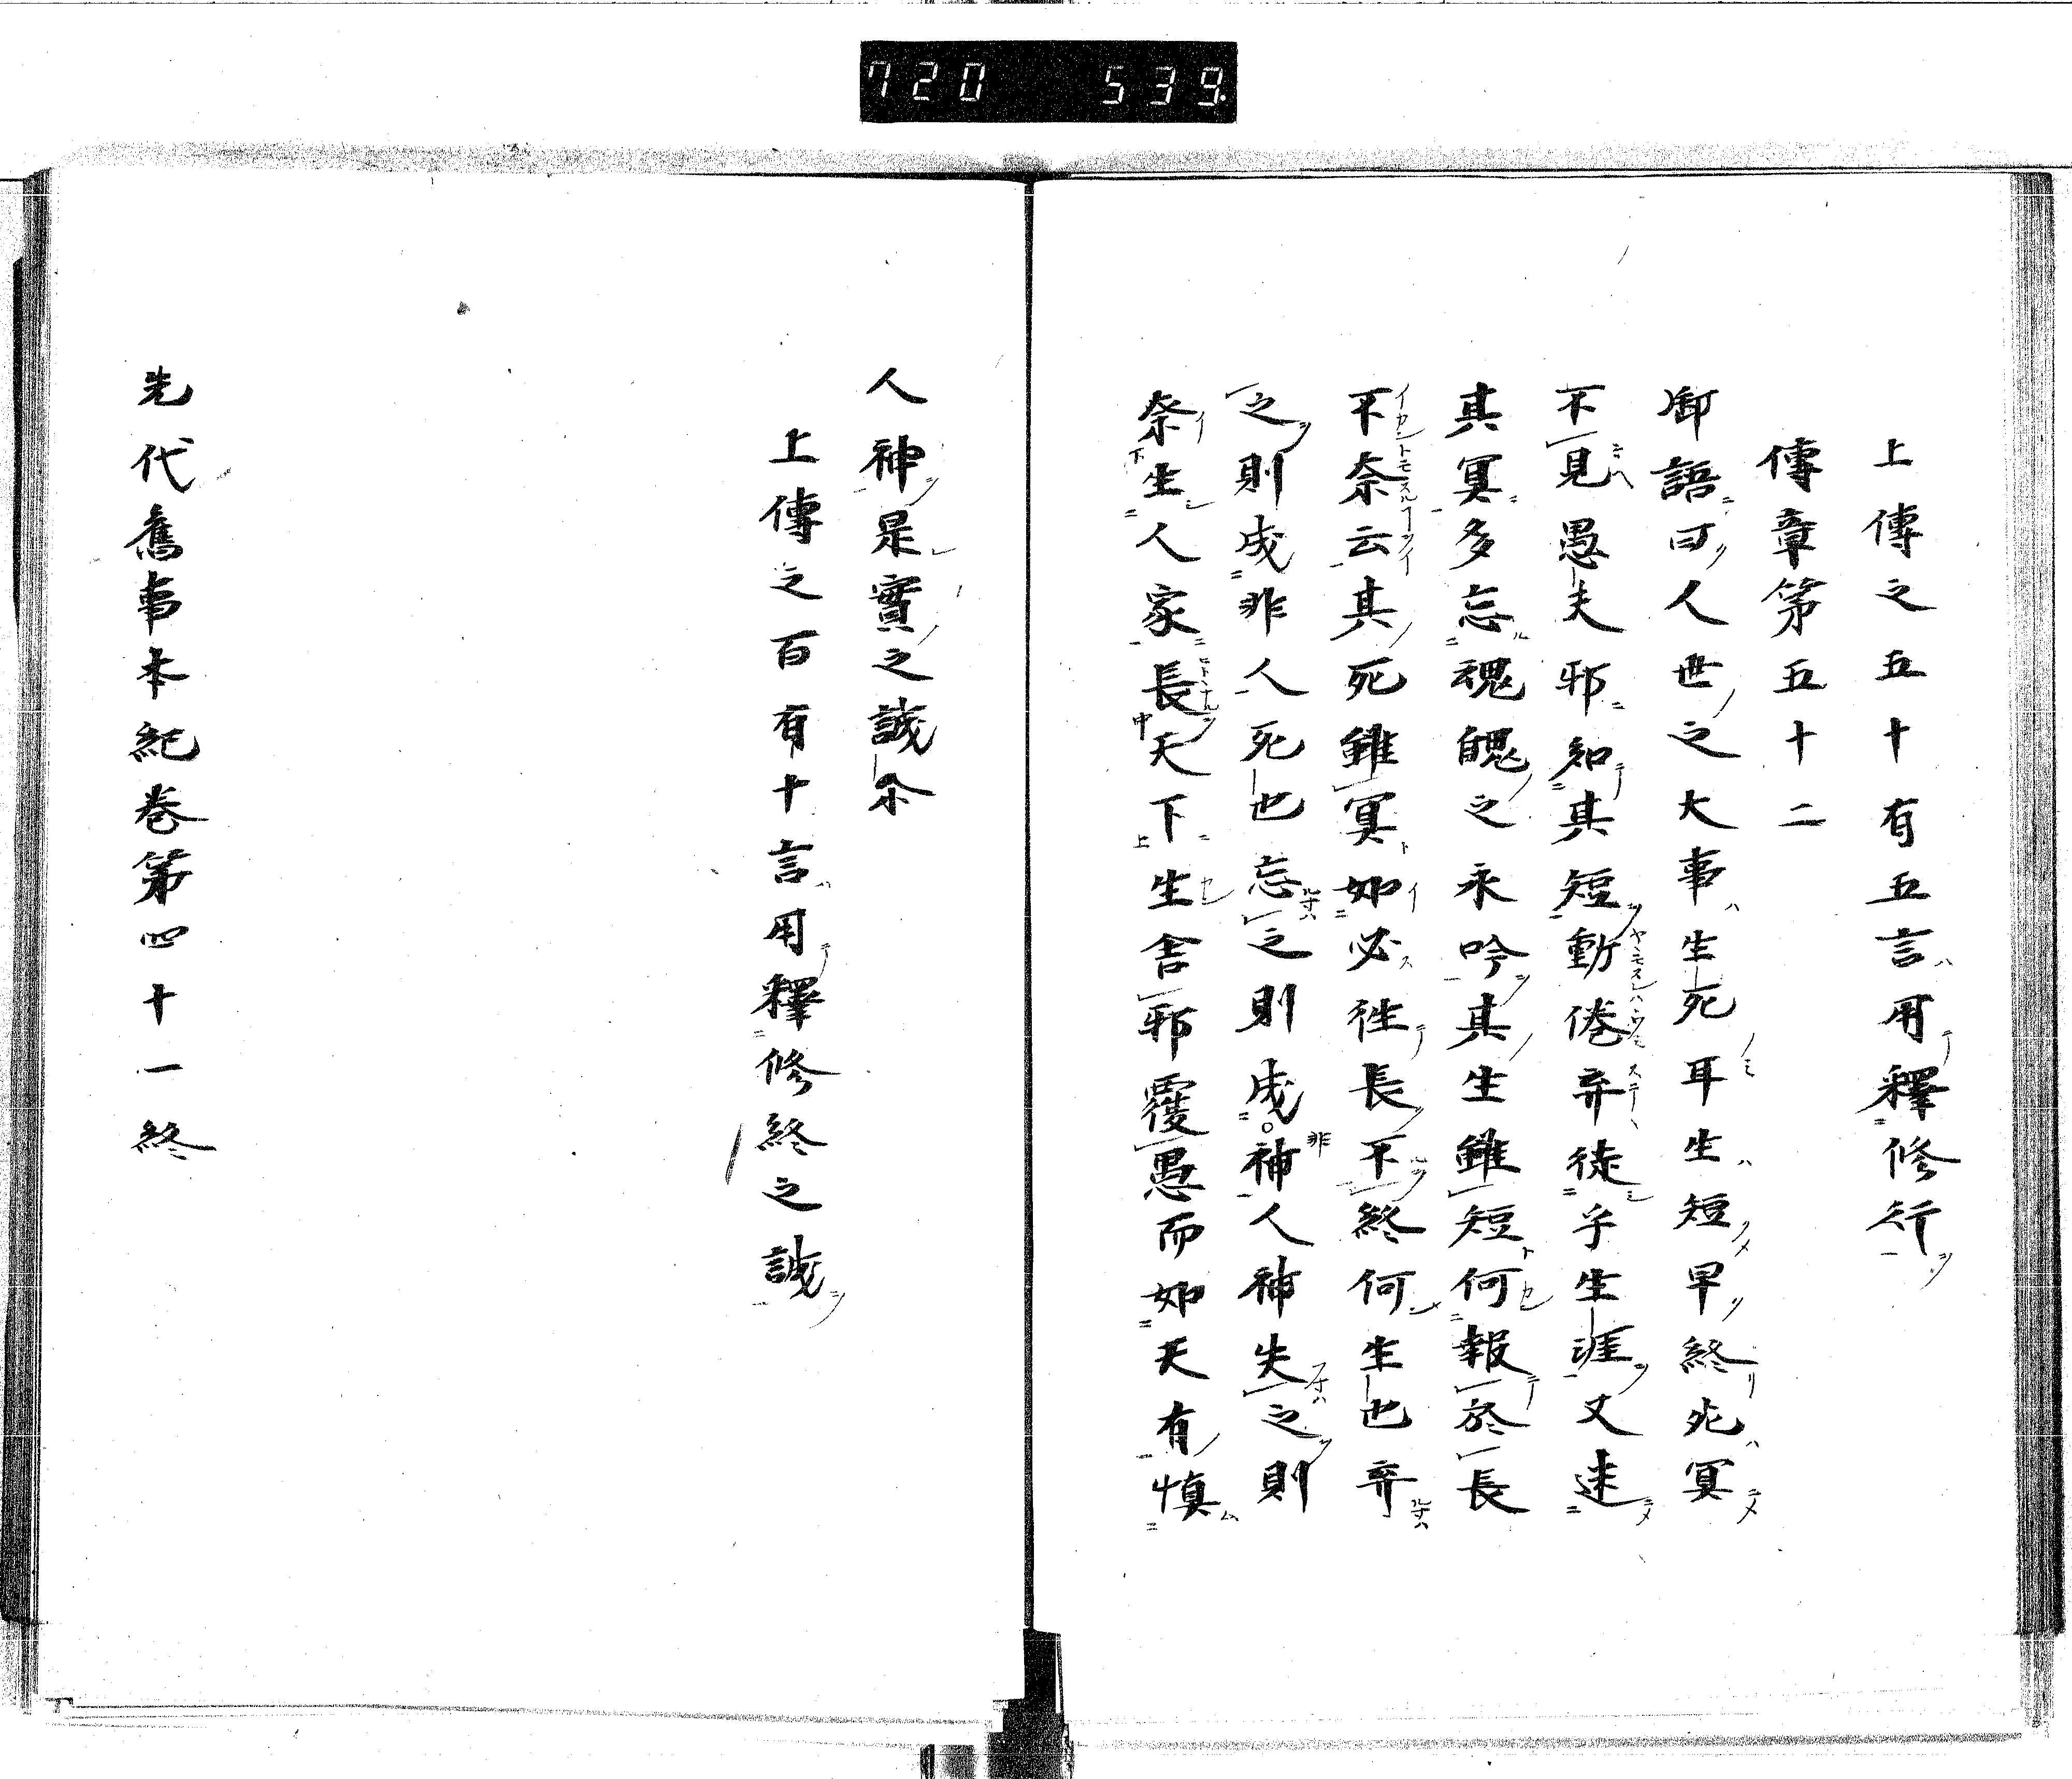 720 539
上傳之五十有五言用釋修行
傳章第五十二
御語曰人世之大事生死耳生短早終死冥
不見愚夫邪知其短動倦弃徒乎生涯丈迷
其冥多忘魂魄之永吟其生雖短何報於長
不奈云其死雖冥如必徃長不終何生也弃
之則成非人死也忘之則成非神人神失之則
奈生人家長天下生舍邪覆愚而如天有慎
人神是實之誠尒
上傳之百有十言用釋修終之誠
先代舊事本紀卷第四十一終